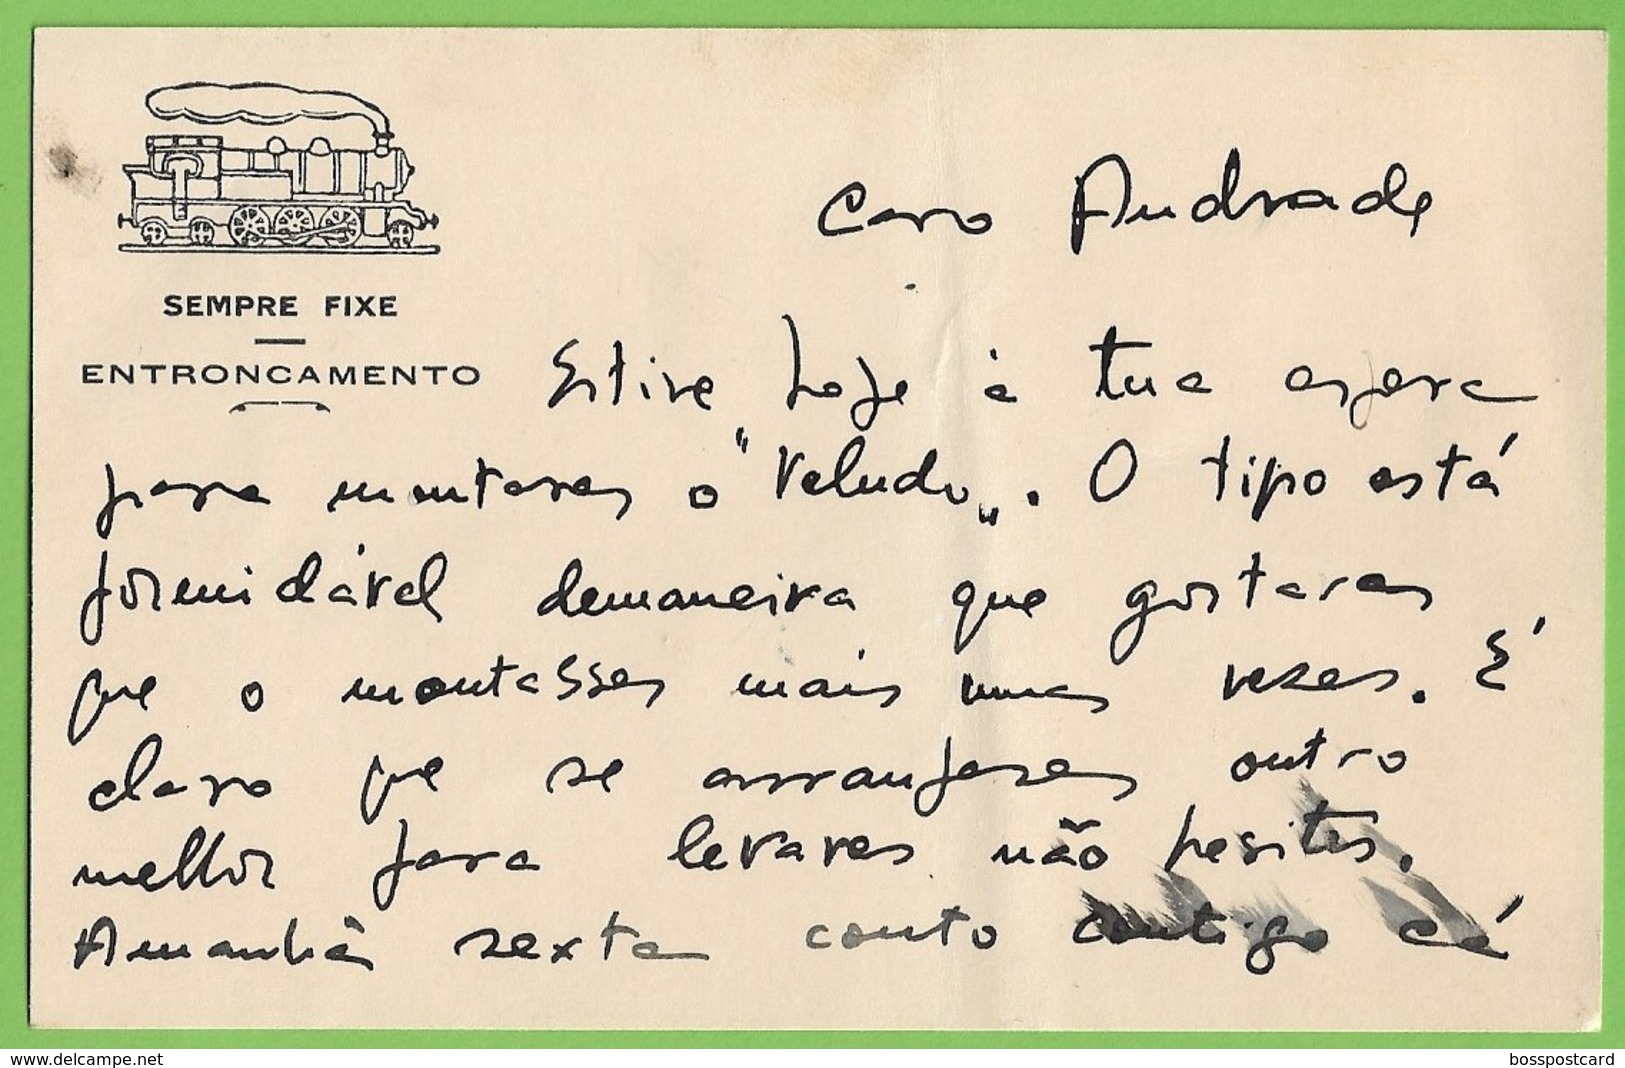 SEMPRE FIXE
ENTRONCAMENTO
Caro Andrade
Estive hoje à tua espera
para montares o "Veludo". O tipo está
formidável demaneira que gostares
que o montasses mais umas vezes. É
claro que se arranjares outro
melhor para levares não hesites.
Amanhã sexta conto contigo cá
www.delcampe.net
bosspostcard